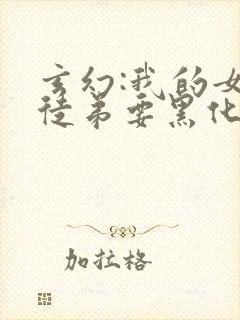 玄幻:我的女
徒弟要黑化
加拉格